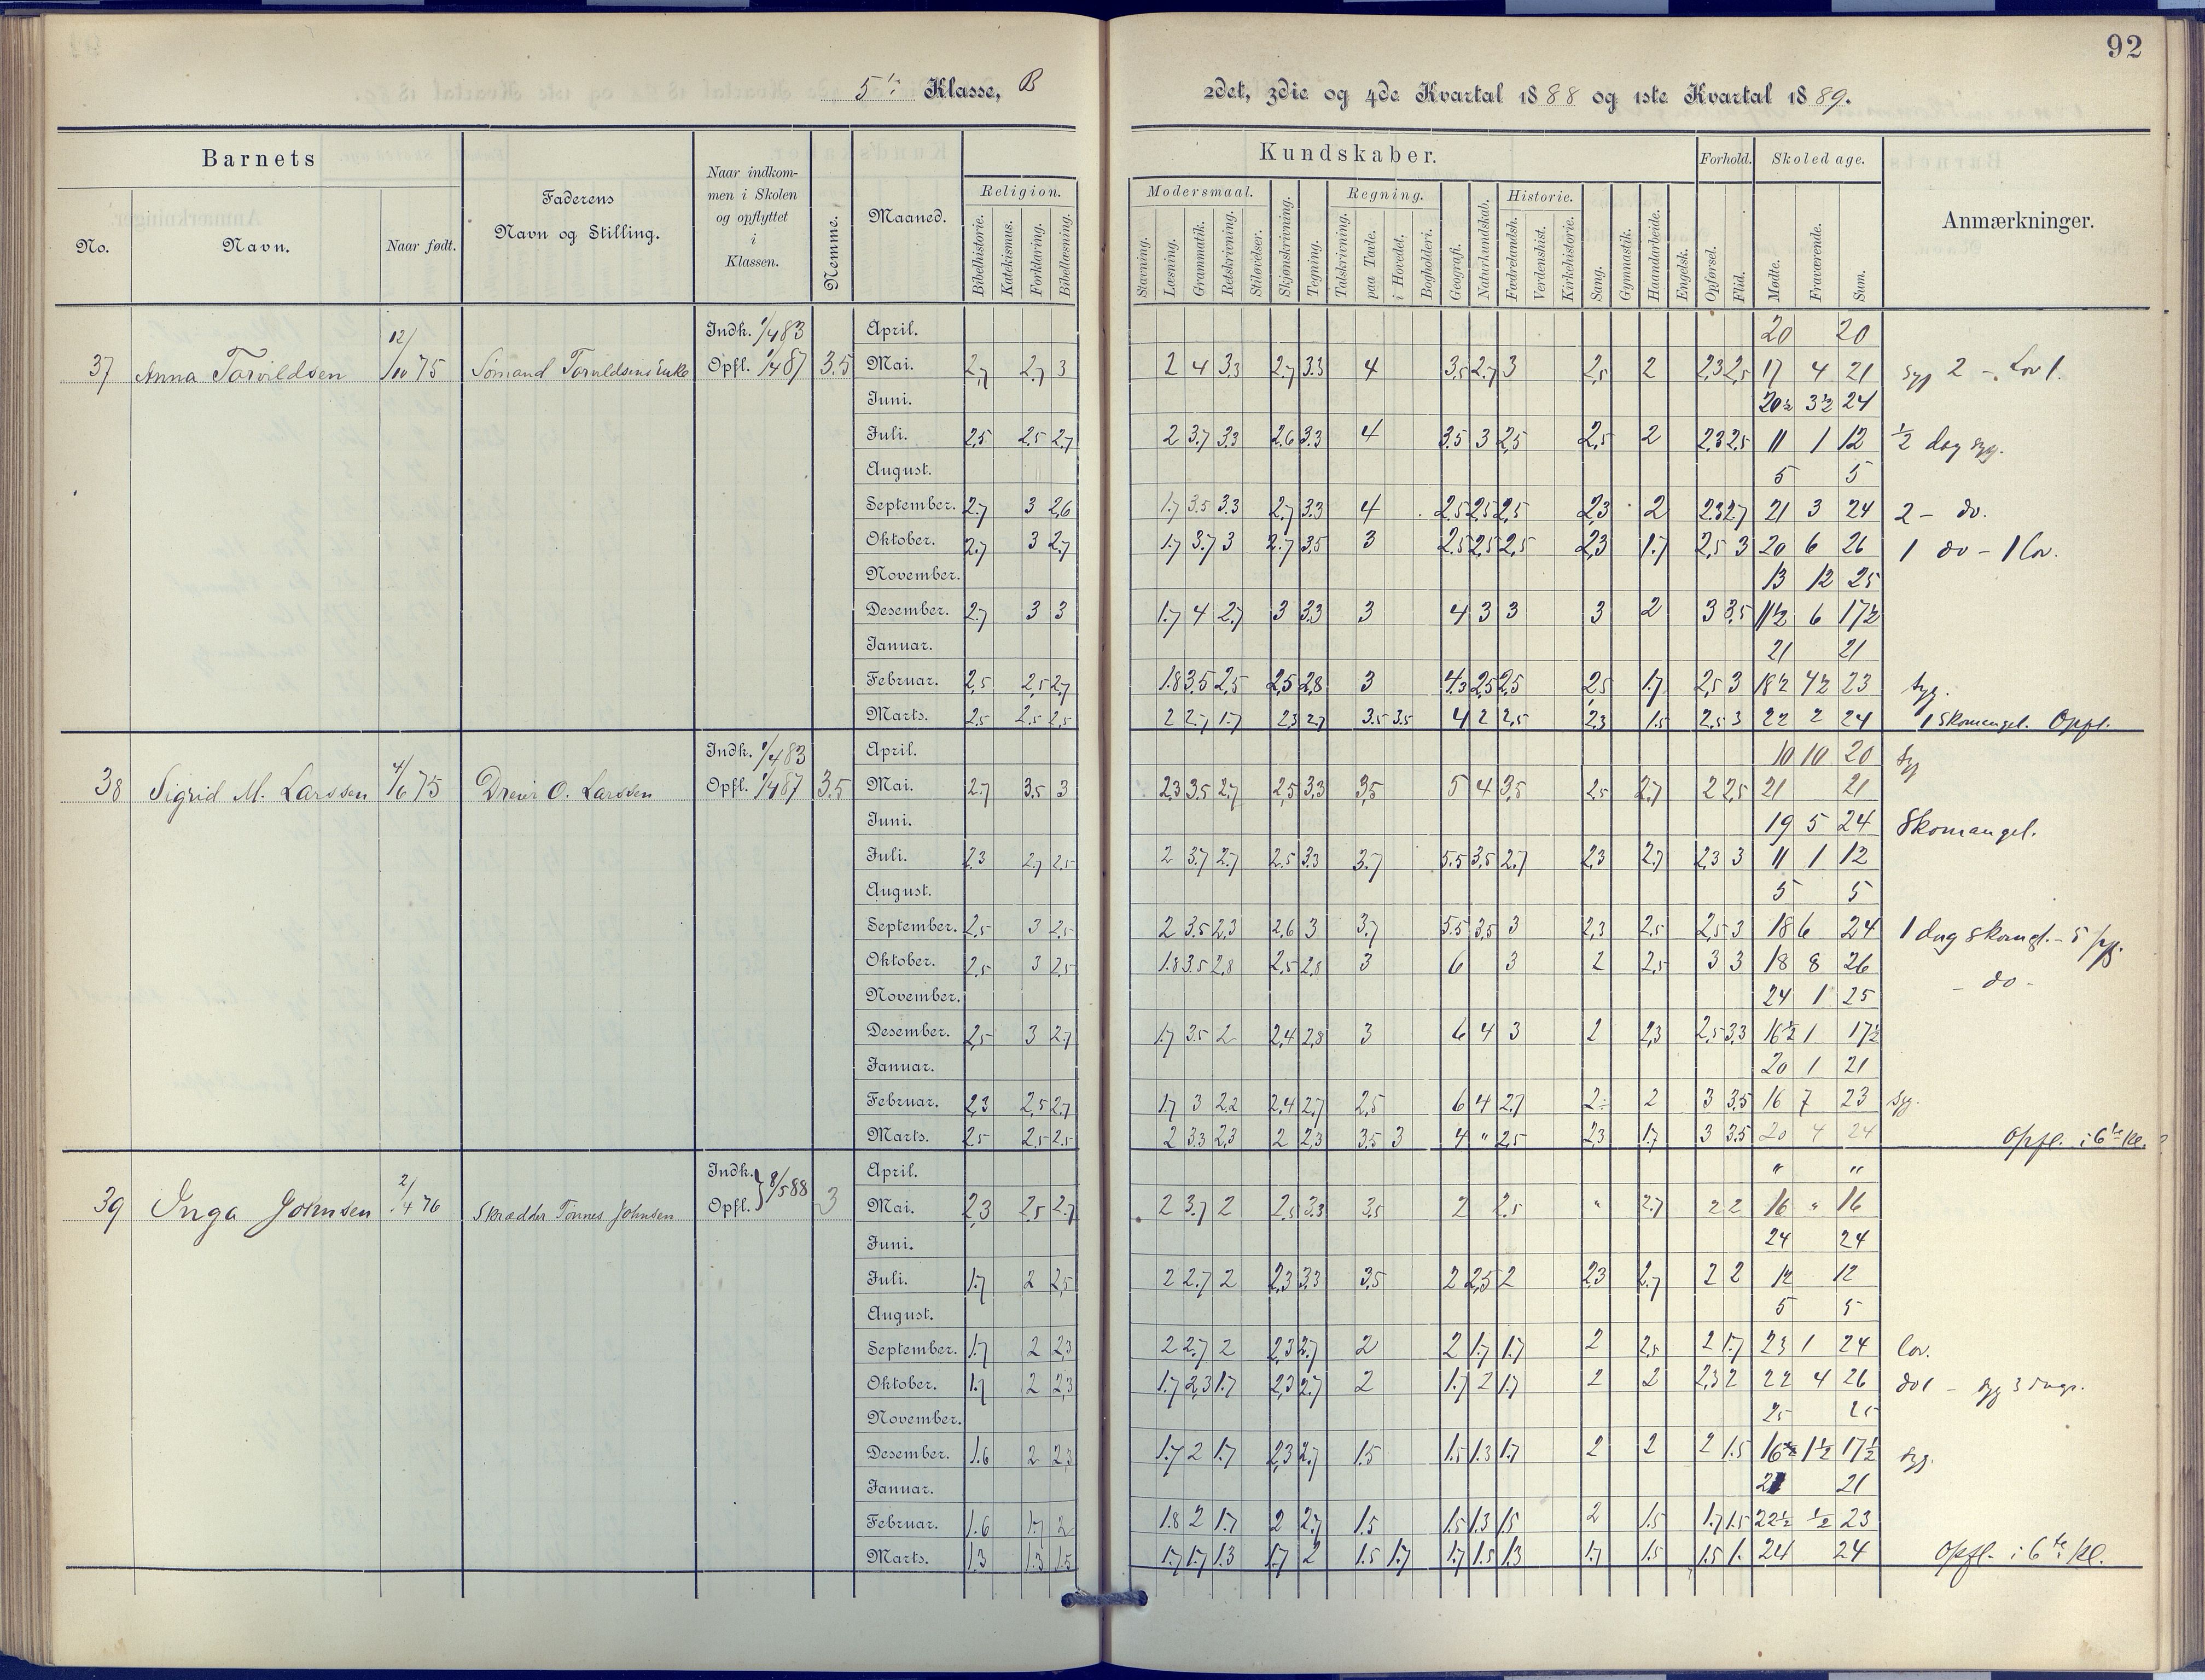 92
5te Klasse, B
2det, 3die og 4de Kvartal 1888 og 1ste Kvartal 1889.
Barnets
No.
Navn.
Naar født.
Faderens
Navn og Stilling.
Naar indkom-
men i Skolen
og opflyttet
i
Klassen.
Nemme.
Maaned.
Kundskaber.
Religion.
Bibelhistorie.
Katekismus.
Forklaring.
Bibellæsning.
Modersmaal.
Stavning.
Læsning.
Grammatik.
Retskrivning.
Stiløvelser.
Skjønskrivning.
Tegning.
Regning.
Talskrivning.
paa Tavle.
i Hovedet.
Bogholderi.
Geografi.
Naturkundskab.
Historie.
Fædrelandsh.
Verdenshist.
Kirkehistorie.
Sang.
Gymnastik.
Haandarbeide.
Engelsk.
Forhold.
Opførsel.
Flid.
Skoledage.
Mødte.
Fraværende.
Sum.
Anmærkninger.
37 Anna Torvildsen 12/10 75 Sømand Torvildsens Enke Indk. 1/4 83 Opfl. 1/4 87 3.5
April. 20 20
Mai. 2,7 2.7 3 2 4 3.3 2.7 3.3 4 3,5 2.7 3 2,5 2 2,3 2,5 17 4 21 syg 2 - Lov 1.
Juni. 20½ 3½ 24
Juli. 2,5 2,5 2,7 2 3.7 3.3 2.6 3.3 4 3.5 3 2,5 2,5 2 2,3 2.5 11 1 12 ½ dag syg.
August. 5 5
September. 2.7 3 2,6 1.7 3.5 3.3 2.7 3.3 4 2.5 2,5 2,5 2,3 2 2.3 2.7 21 3 24 2 - do.
Oktober. 2.7 3 2.7 1.7 3.7 3 2.7 3,5 3 2.5 2,5 2,5 2,3 1.7 2,5 3 20 6 26 1 do - 1 lov.
November. 13 12 25
Desember. 2.7 3 3 1.7 4 2.7 3 3.3 3 4 3 3 3 2 3 3,5 11½ 6 17½
Januar. 21 21
Februar. 2,5 2,5 2.7 1.8 3.5 2,5 2,5 2,8 3 4.3 2,5 2,5 2,5 1.7 2,5 3 18½ 4½ 23 syg.
Marts. 2.5 2.5 2,5 2 2.7 1.7 2.3 2.7 3.5 3.5 4 2 2,5 2.3 1.5 2.5 3 22 2 24 1 skomangel. Opfl.
38 Sigrid M. Larssen 4/6 75 Dreier O. Larssen Indk. 1/4 83 Opfl. 1/4 87 3.5
April. 10 10 20 syg
Mai. 2.7 3.5 3 2.3 3.5 2.7 2,5 3.3 3,5 5 4 3,5 2.5 2.7 2 2,5 21 21
Juni. 19 5 24 Skomangel.
Juli. 2.3 2.7 2.5 2 3.7 2.7 2.5 3.3 3.7 5.5 3,5 2.7 2,3 2.7 2,3 3 11 1 12
August. 5 5
September. 2.5 3 2.5 2 3.5 2.3 2.6 3 3.7 5.5 3.5 3 2,3 2.5 2,5 3 18 6 24 1 dag skomgl. - 5 syg.
Oktober. 2,5 3 2,5 1.8 3.5 2,8 2,5 2,8 3 6 3 2 2,5 3 3 18 8 26 - do -
November. 24 1 25
Desember. 2,5 3 2.7 1.7 3.5 2 2,4 2,8 3 6 4 3 2 2,3 2,5 3.3 16½ 1 17½
Januar. 20 1 21
Februar. 2,3 2,5 2.7 1.7 3 2.2 2,4 2.7 2,5 6 4 2.7 2 2 3 3.5 16 7 23 syg.
Marts. 2.5 2.5 2.5 2 3.3 2,3 2 2,3 3.5 3 4 " 2,5 2,3 1.7 3 3.5 20 4 24 Opfl. i 6te Kl.
39 Inga Johnsen 2/4 76 Skrædder Tønnes Johnsen Indk. Opfl. } 8/5 88 3
April. " "
Mai. 2,3 2,5 2.7 2 3.7 2 2.5 3.3 3.5 2 2.5 " 2.7 2 2 16 " 16
Juni. 24 24
Juli. 1.7 2 2,5 2 2.7 2 2,3 3.3 3.5 2 2,5 2 2,3 2.7 2 2 12 12
August. 5 5
September. 1.7 2 2,3 2 2.7 2 2,3 2.7 2 2 1.7 1.7 2 2,5 2 1.7 23 1 24 lov.
Oktober. 1.7 2 2,3 1.7 2,3 1.7 2,3 2.7 2 1.7 2 1.7 2 2 2,3 2 22 4 26 do 1 - syg 3 dage.
November. 25 25
Desember. 1.6 2 2,3 1.7 2 1.7 2,3 2.7 1.5 1.5 1.3 1.7 2 2 2 1.5 16½ 1½ 17½ syg.
Januar. 21 21
Februar. 1.6 1.7 2 1.8 2 1.7 2 2.7 1.5 1.5 1.3 1.5 2 1.5 1.7 1.5 22½ ½ 23
Marts. 1.3 1.3 1.5 1.7 1.7 1.3 1.7 2 1.5 1.7 1.7 1.5 1.3 1.7 1.5 1.5 1. 24 24 Opfl. i 6te Kl.